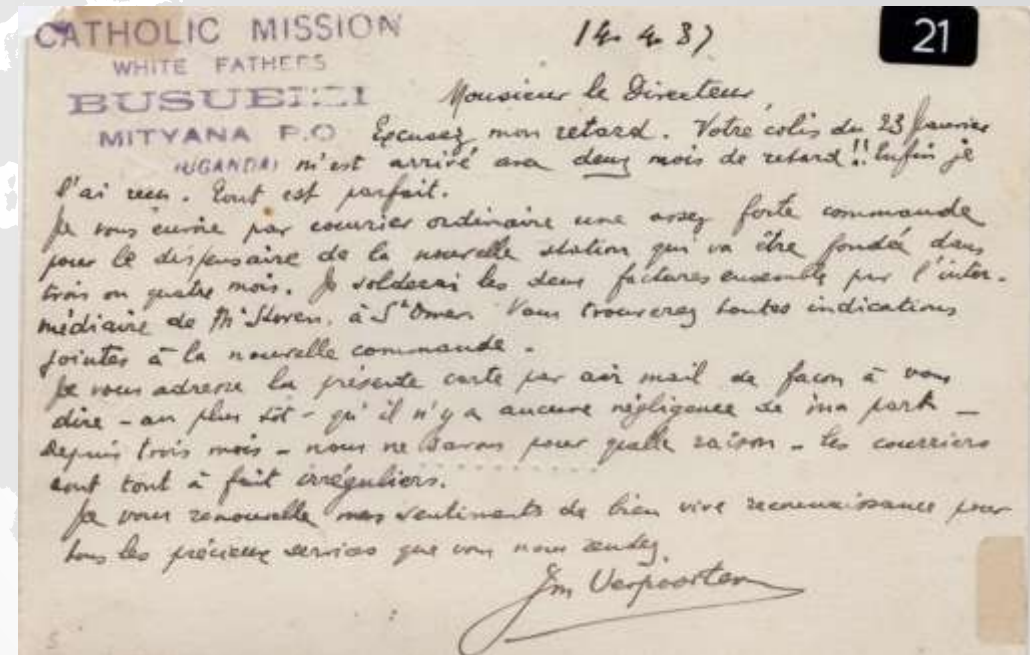 CATHOLIC MISSION
WHITE FATHERS
BUSUBIZI
MITYANA P.O
(UGANDA)
14. 4. 37
21
Monsieur le Directeur,
Excusez mon retard. Votre colis du 23 Janvier
m'est arrivé avec deux mois de retard!! Enfin je
l'ai reçu. Tout est parfait.
Je vous envoie par courrier ordinaire une assez forte commande
pour le dispensaire de la nouvelle station qui va être fondée dans
trois ou quatre mois. Je solderai les deux factures ensemble par l'inter-
médiaire de Mr Storen, à St Omer. Vous trouverez toutes indications
jointes à la nouvelle commande.
Je vous adresse la présente carte par air mail de façon à vous
dire - au plus tôt - qu'il n'y a aucune négligence de ma part -
Depuis trois mois - nous ne savons pour quelle raison - les courriers
sont tout à fait irréguliers.
Je vous renouvelle mes sentiments de bien vive reconnaissance pour
tous les précieux services que vous nous rendez.
Jm Verpoorten